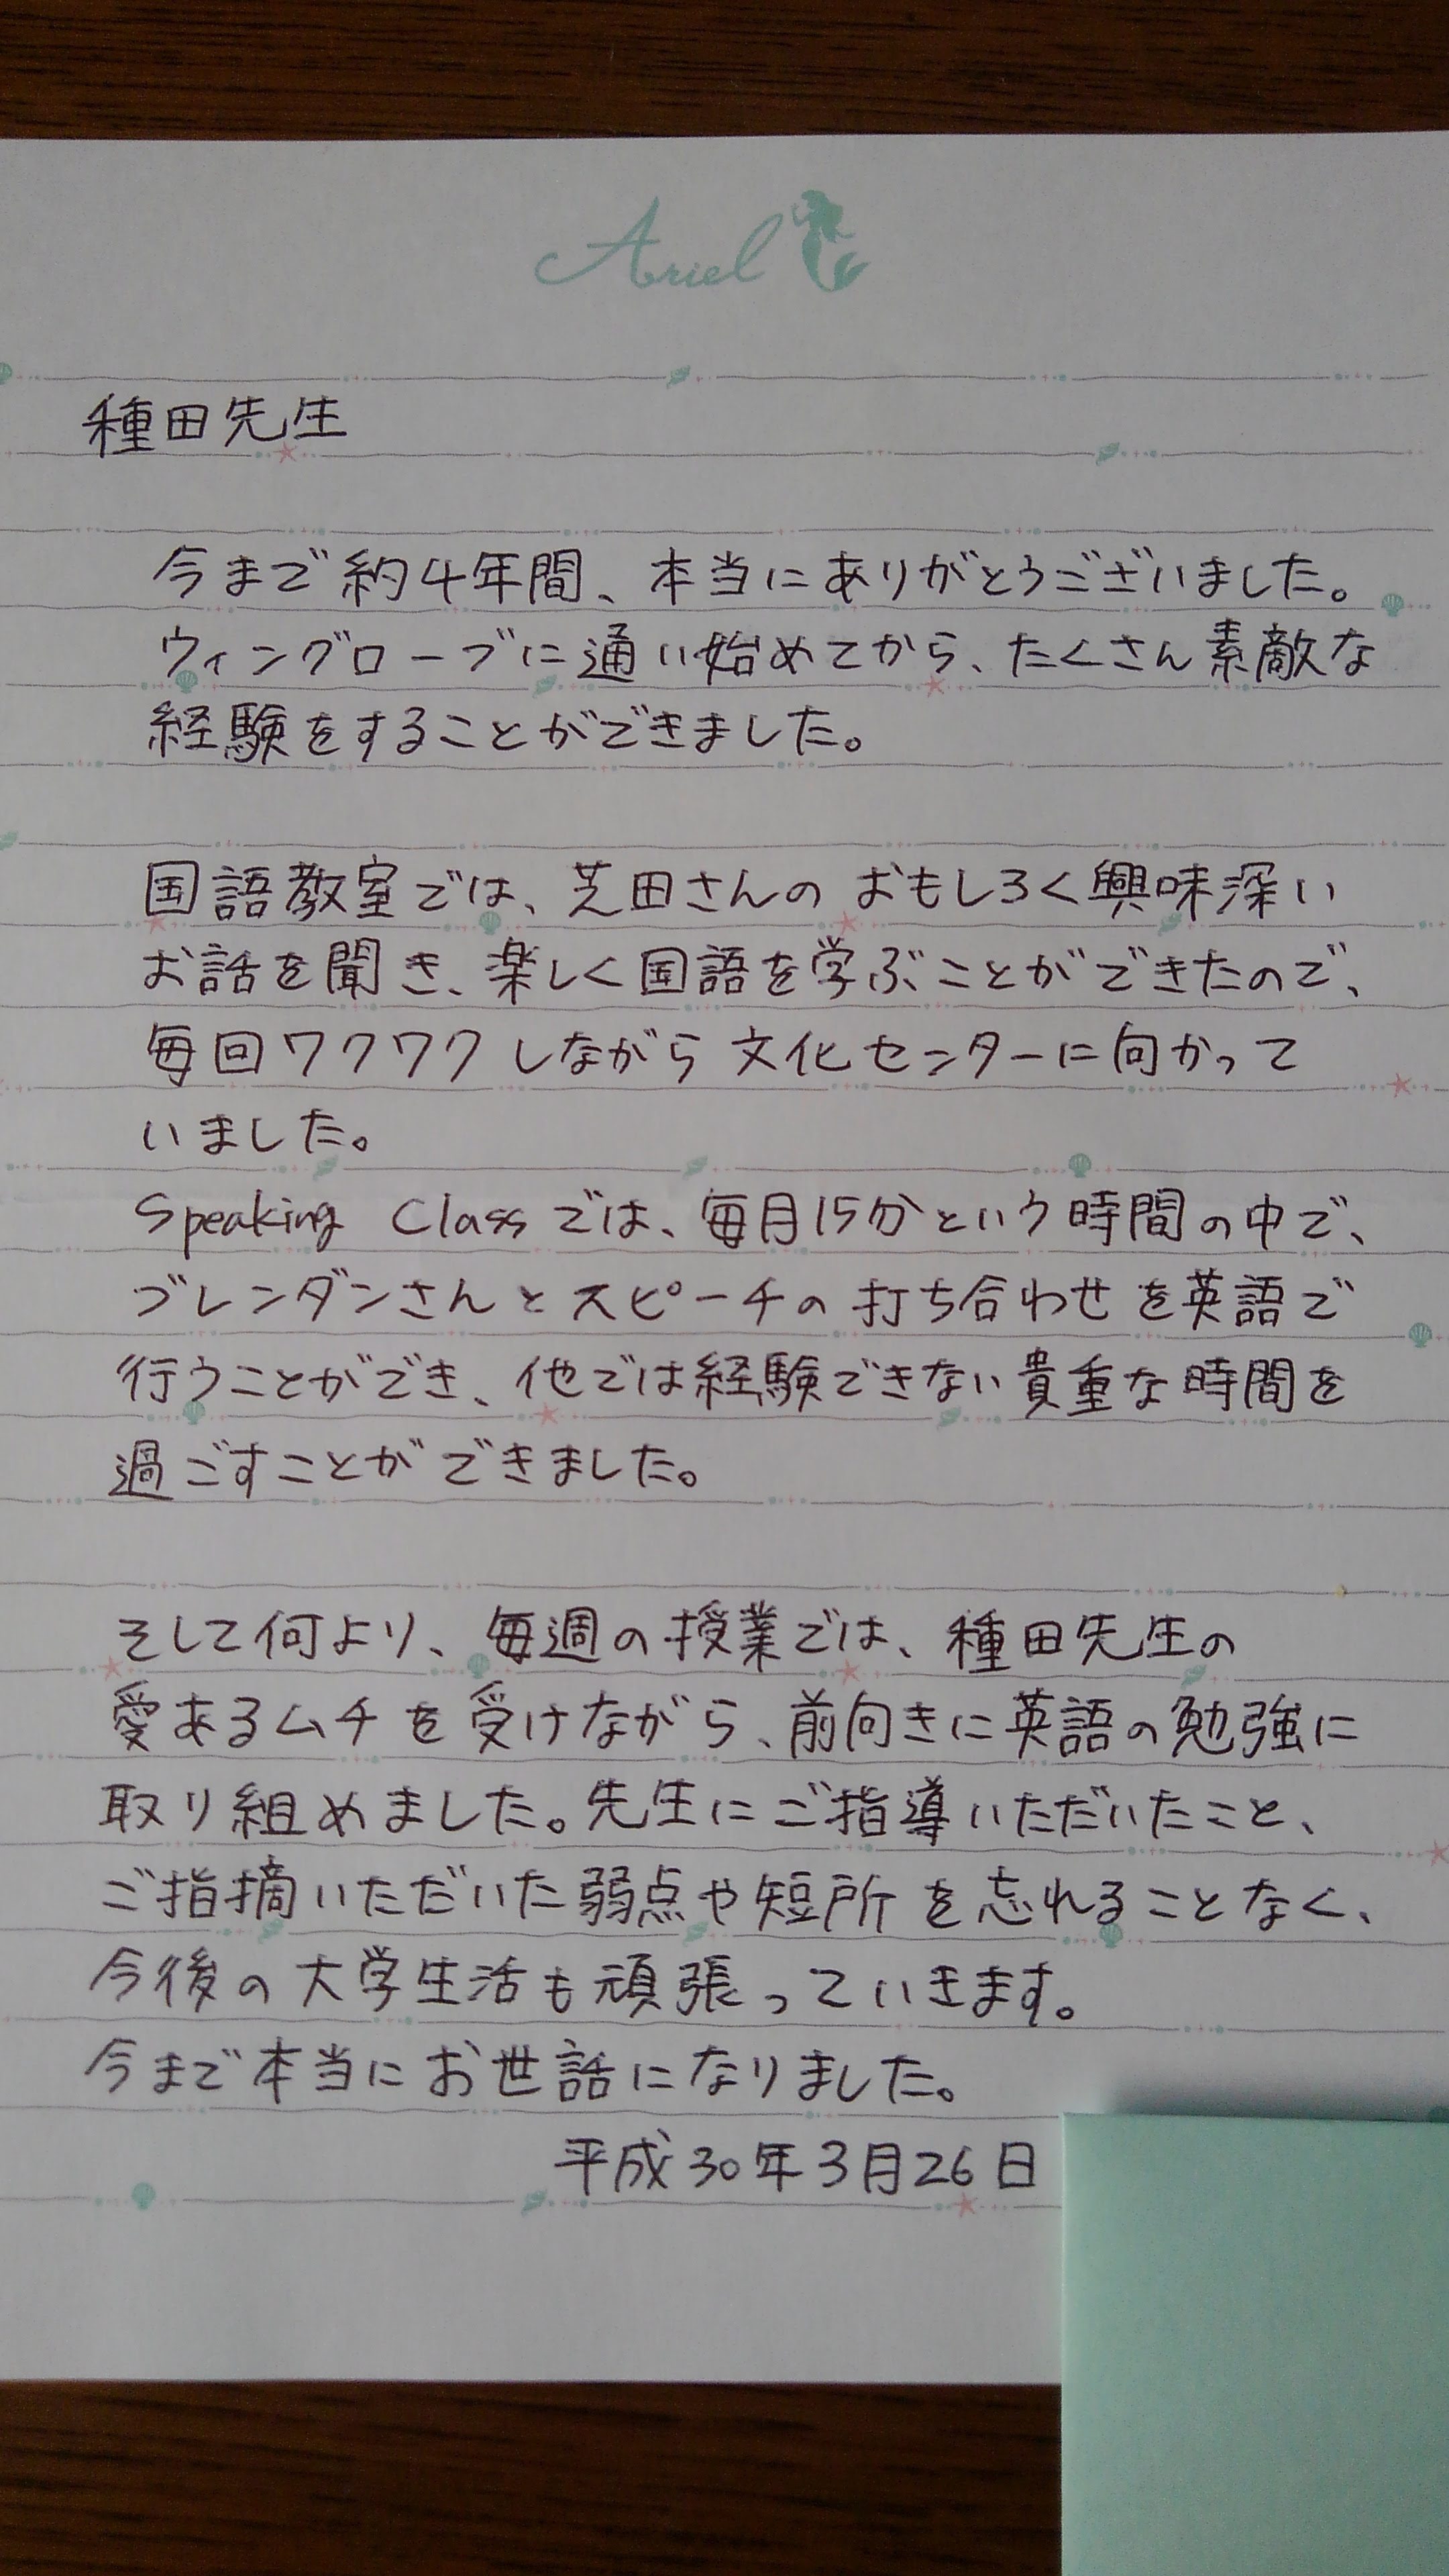 Ariel
種田先生
今まで約4年間、本当にありがとうございました。
ウィングローブに通い始めてから、たくさん素敵な
経験をすることができました。
国語教室では、芝田さんのおもしろく興味深い
お話を聞き、楽しく国語を学ぶことができたので、
毎回ワクワクしながら文化センターに向かって
いました。
Speaking Classでは、毎月15分という時間の中で、
ブレンダンさんとスピーチの打ち合わせを英語で
行うことができ、他では経験できない貴重な時間を
過ごすことができました。
そして何より、毎週の授業では、種田先生の
愛あるムチを受けながら、前向きに英語の勉強に
取り組めました。先生にご指導いただいたこと、
ご指摘いただいた弱点や短所を忘れることなく、
今後の大学生活も頑張っていきます。
今まで本当にお世話になりました。
平成30年3月26日